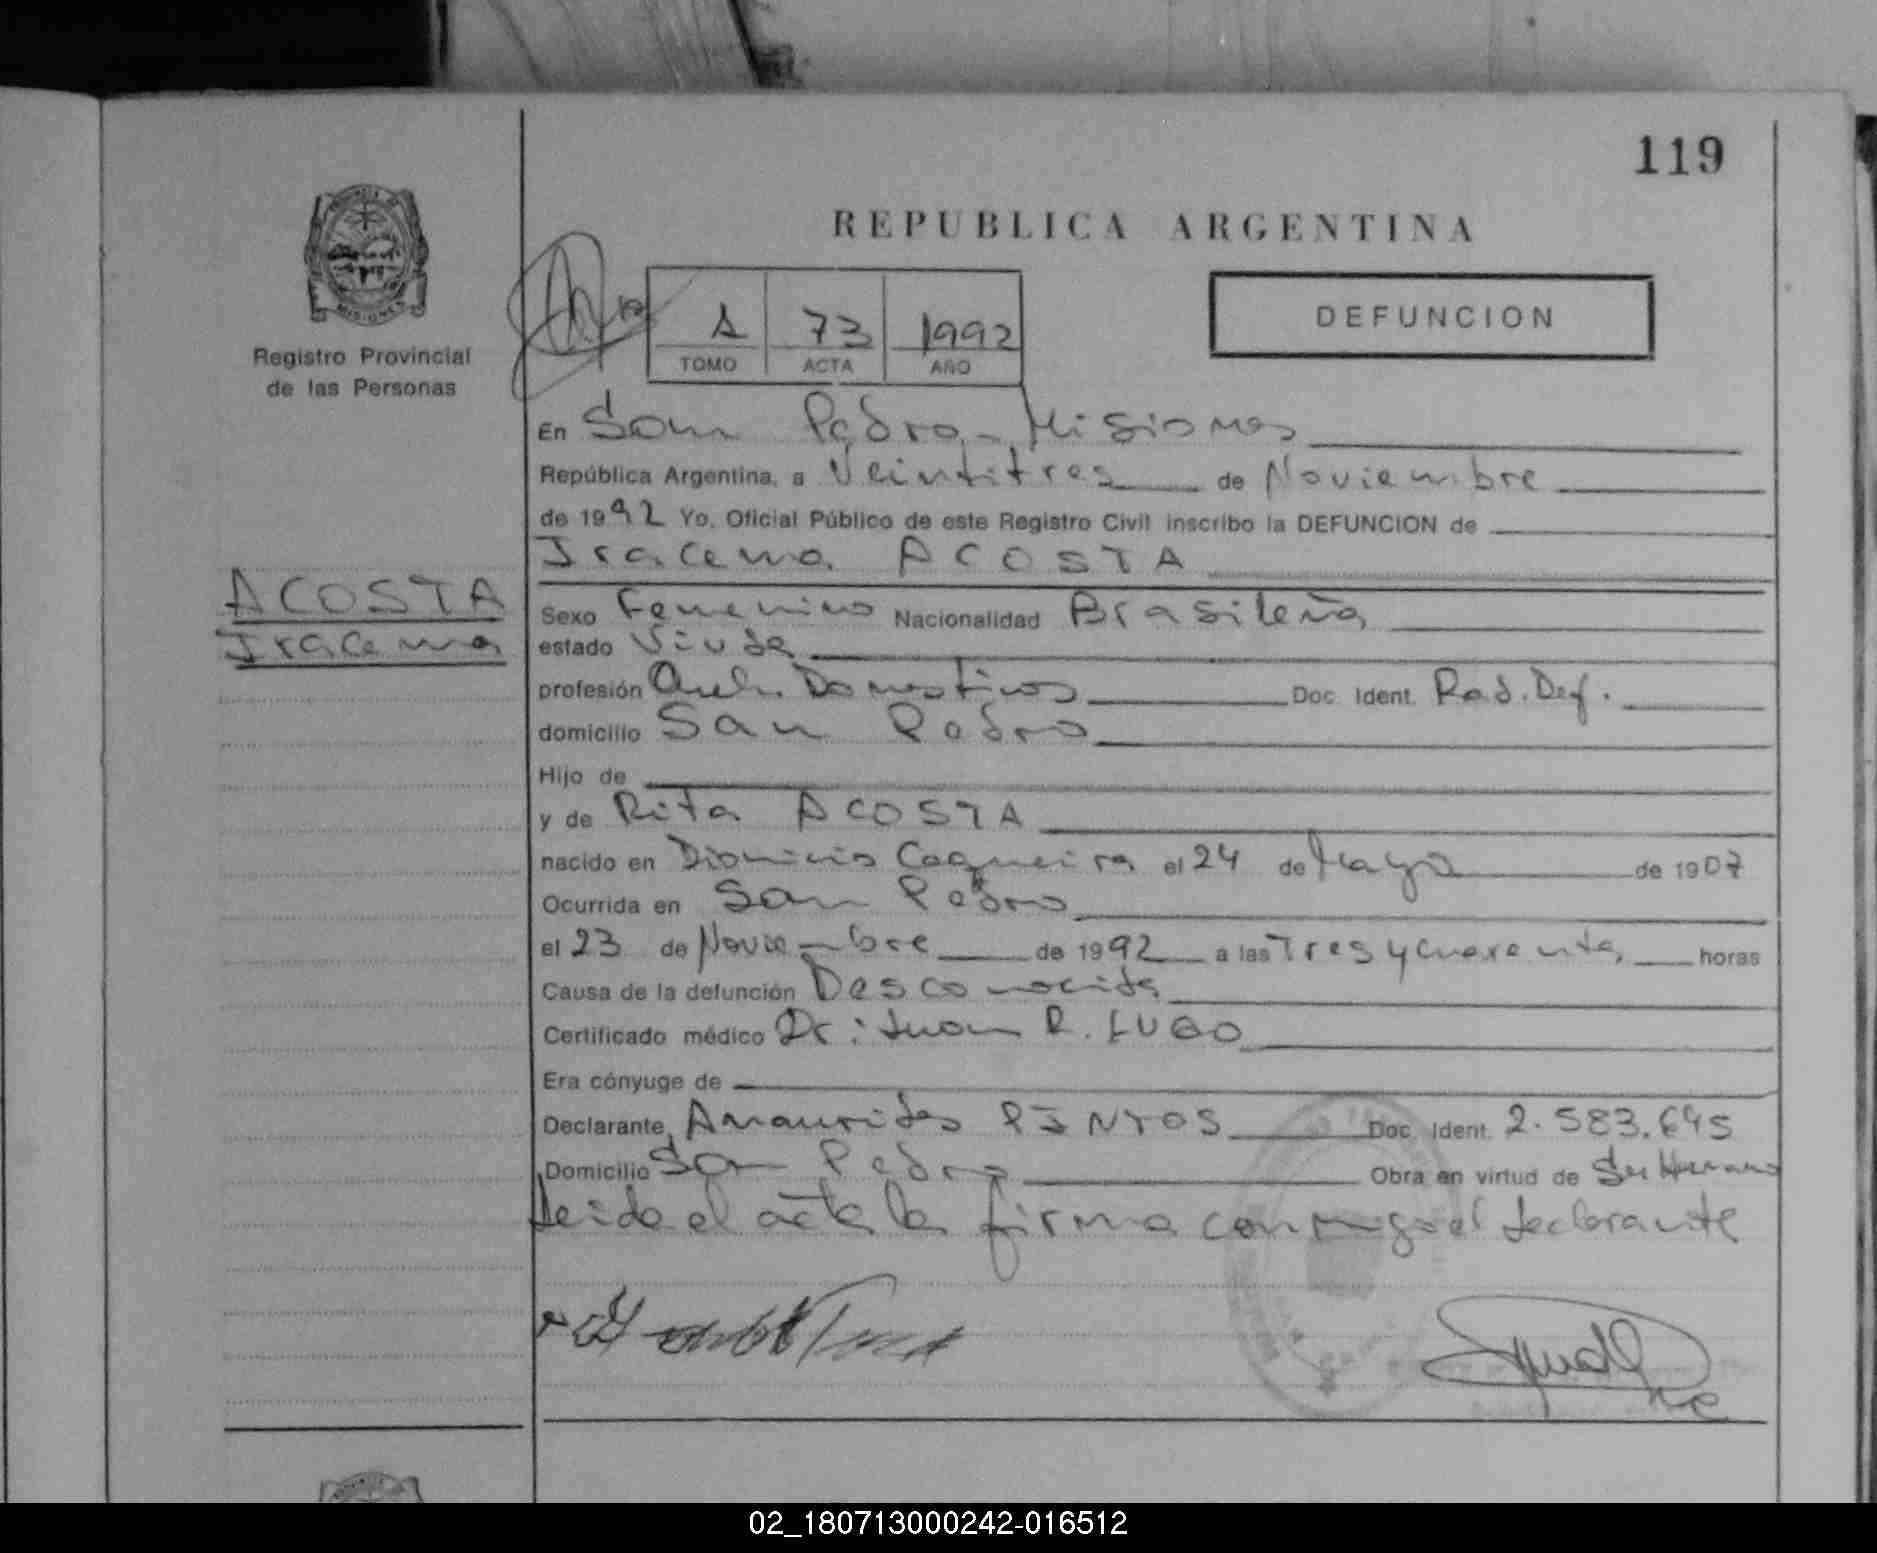 119
REPUBLICA ARGENTINA
MISIONES
Registro Provincial
de las Personas
A 73 1992
TOMO ACTA AÑO
DEFUNCION
En San Pedro - Misiones
República Argentina, a Veintitres de Noviembre
de 1992 Yo, Oficial Público de este Registro Civil inscribo la DEFUNCION de
Iracema ACOSTA
ACOSTA
Iracema
Sexo Femenino Nacionalidad Brasileña
estado Viuda
profesión Queh. Domesticos Doc. Ident. Rad. Def.
domicilio San Pedro
Hijo de
y de Rita ACOSTA
nacido en Dionicio Cerqueira el 24 de Mayo de 1907
Ocurrida en San Pedro
el 23 de Noviembre de 1992 a las Tres y cuarenta horas
Causa de la defunción Desconocida
Certificado médico Dr: Juan R. LUGO
Era cónyuge de
Declarante, Amaurides PINTOS Doc. Ident. 2.583.645
Domicilio San Pedro Obra en virtud de Ser Hermano
Leida el acta la firma conmigo el declarante
02_180713000242-016512